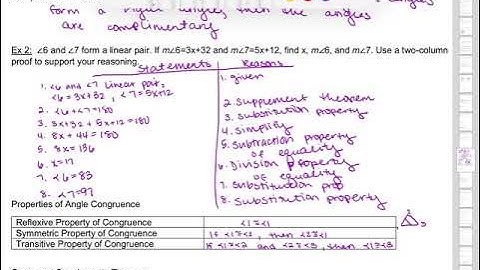 form a right angle, then the angles
are complimentary
Ex 2: ∠6 and ∠7 form a linear pair. If m∠6=3x+32 and m∠7=5x+12, find x, m∠6, and m∠7. Use a two-column
proof to support your reasoning.
Statements Reasons
1. ∠6 and ∠7 linear pair, 1. given
∠6=3x+32, ∠7=5x+12
2. ∠6+∠7=180 2. Supplement theorem
3. 3x+32+5x+12=180 3. substitution property
4. 8x+44=180 4. Simplify
5. 8x=136 5. Subtraction property
of equality
6. x=17 6. Division property
of equality
7. ∠6=83 7. Substitution prop
8. ∠7=97 8. Substitution property
Properties of Angle Congruence
Reflexive Property of Congruence ∠1≅∠1
Symmetric Property of Congruence If ∠1≅∠2, then ∠2≅∠1
Transitive Property of Congruence If ∠1≅∠2 and ∠2≅∠3, then ∠1≅∠3